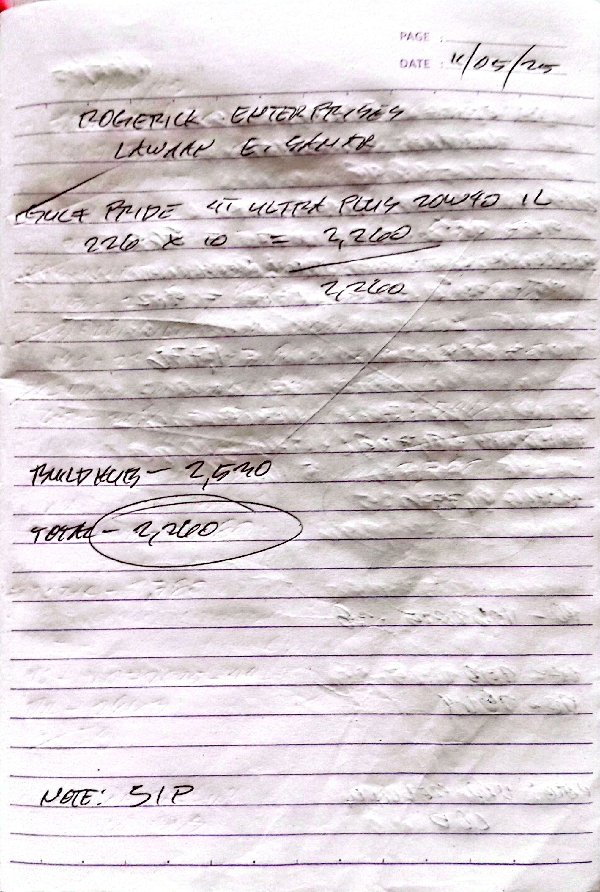 PAGE :
DATE : 11/05/25
ROGERICK ENTERPRISES
LAWAAN E. SAMAR
GULF PRIDE 4T ULTRA PLUS 20W40 1L
226 x 10 = 2,260
2,260
BUILDHUB - 2,530
TOTAL - 2,260
NOTE: SIP